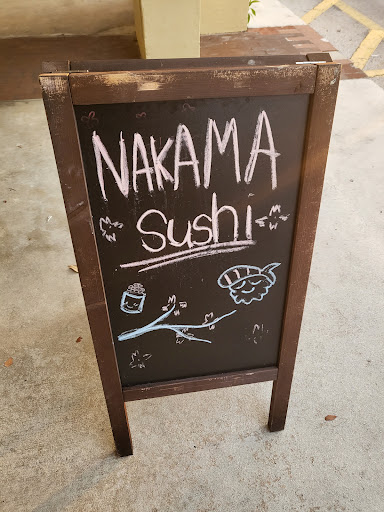 NAKAMA
Sushi